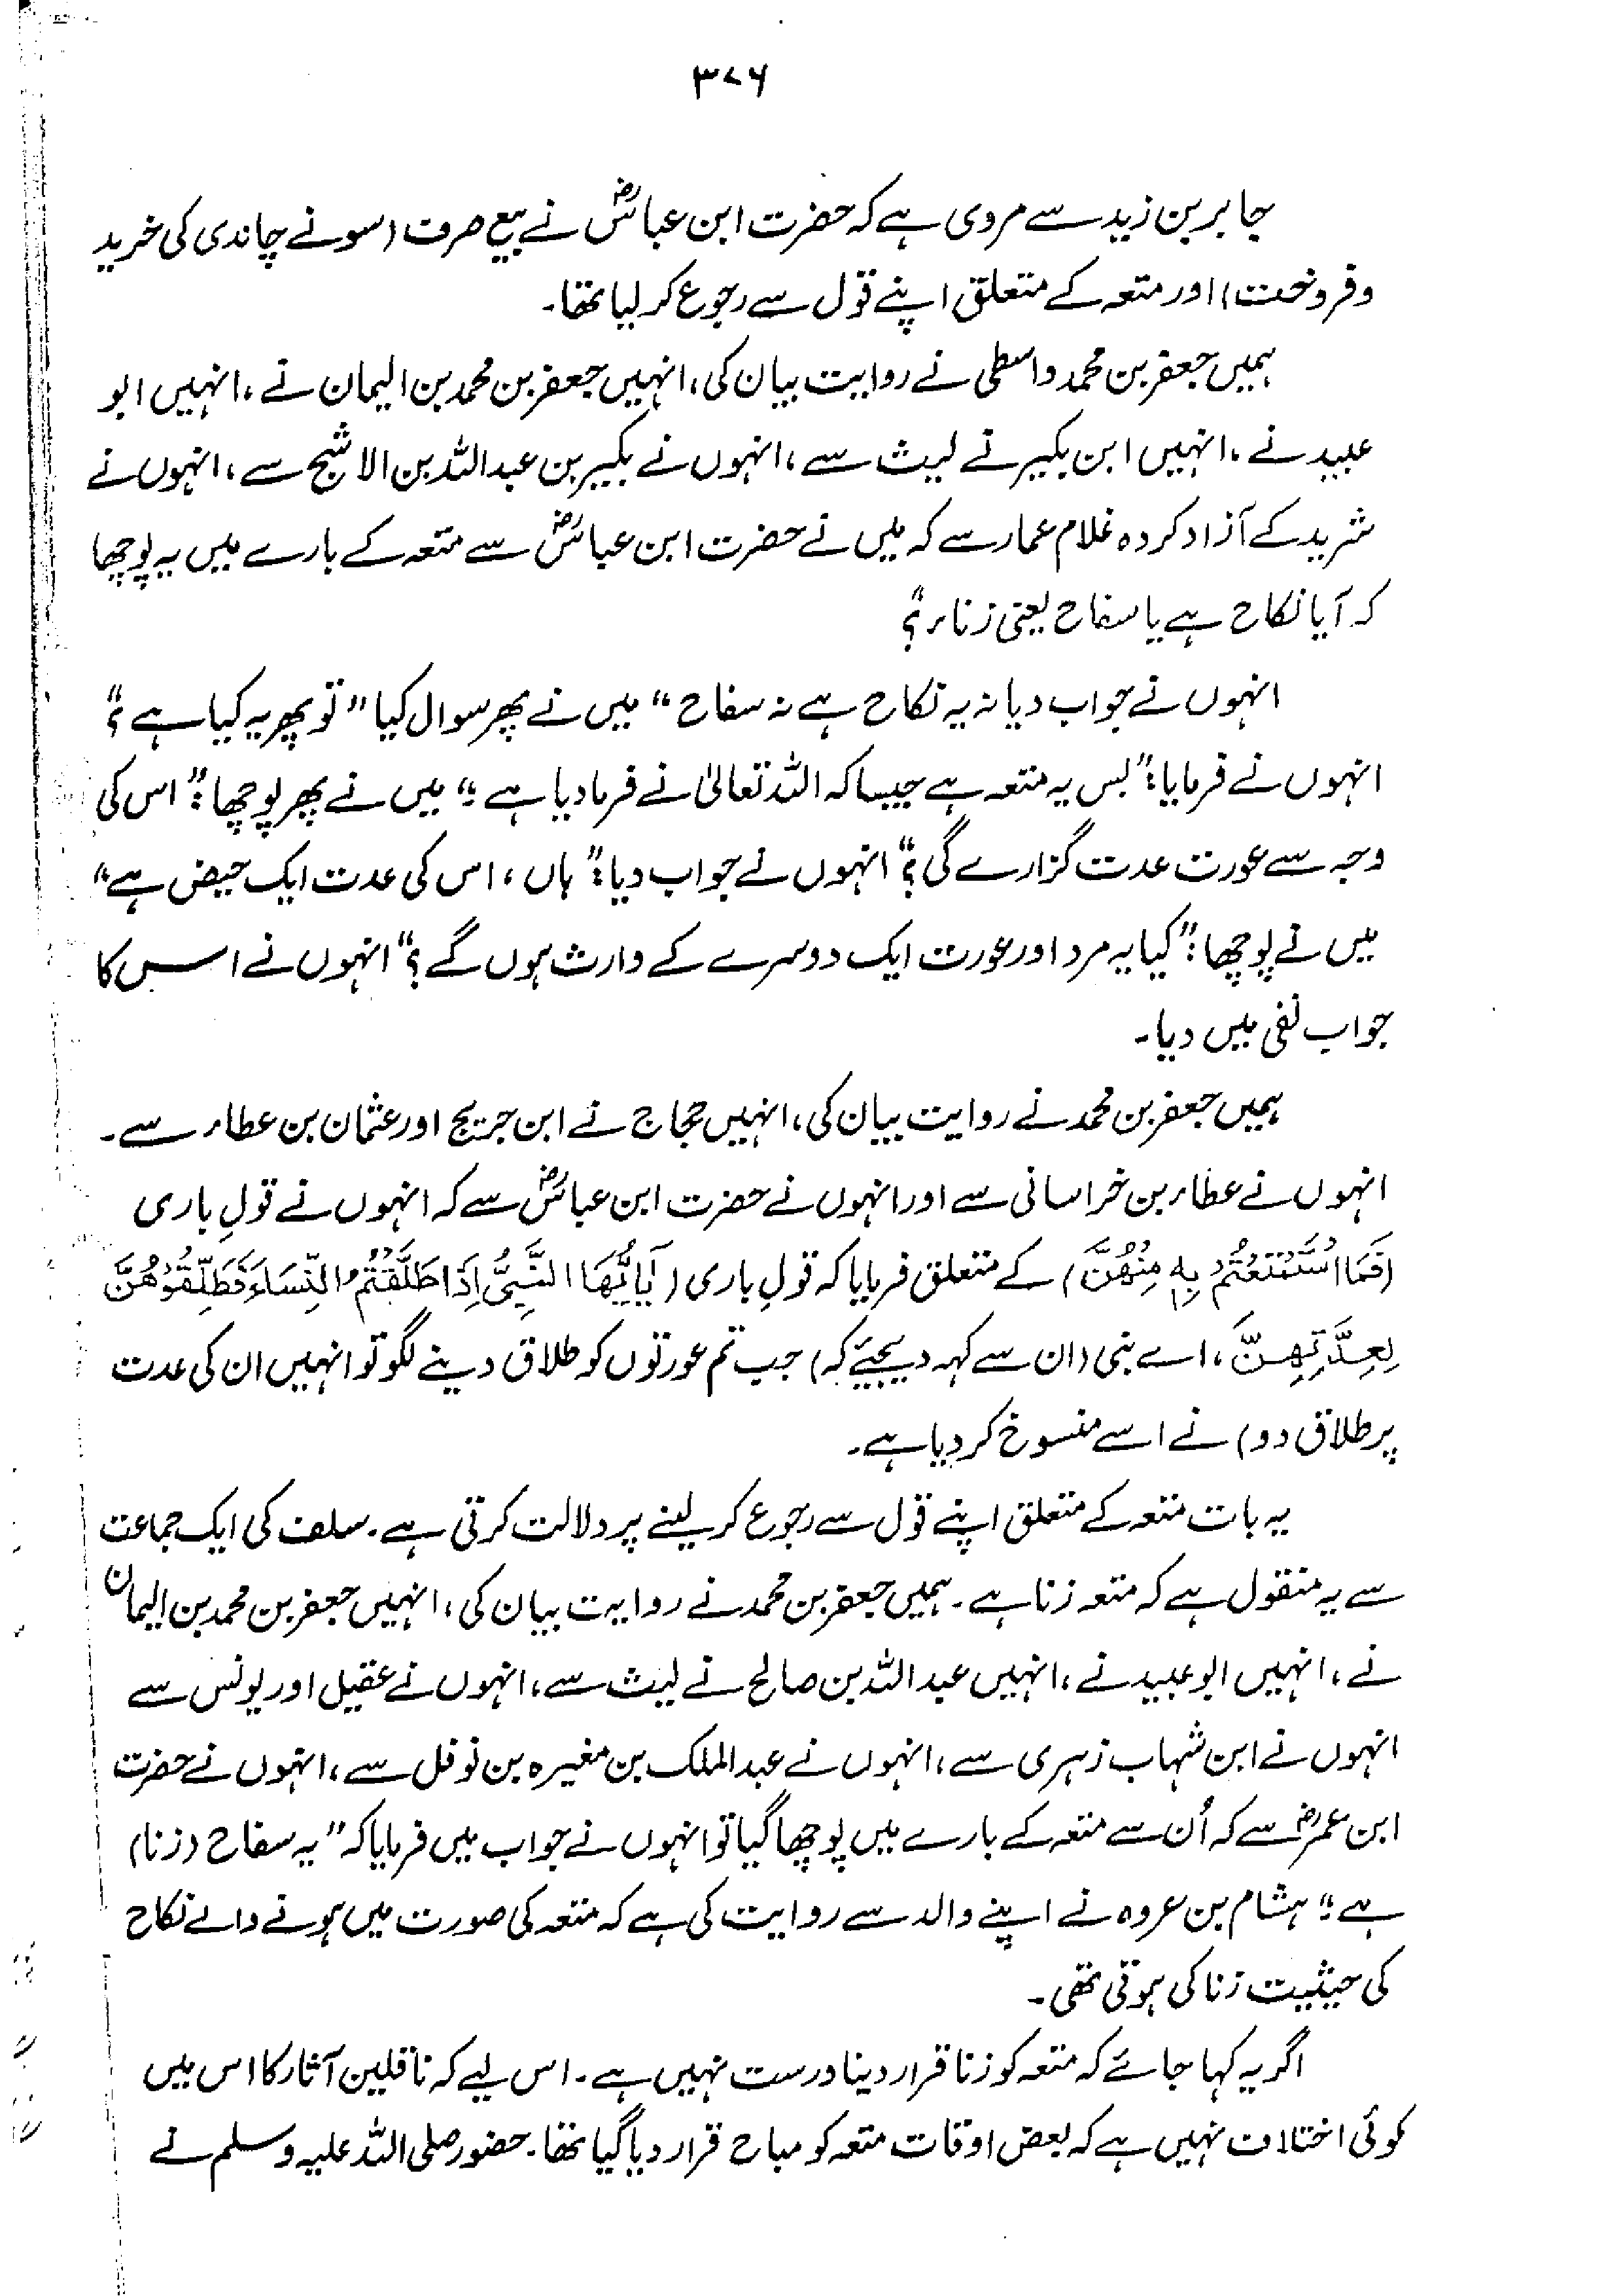 ۳۷۶
جابر بن زید سے مروی ہے کہ حضرت ابن عباسؓ نے بیع صرف (سونے چاندی کی خرید
وفروخت) اور متعہ کے متعلق اپنے قول سے رجوع کر لیا تھا۔
ہمیں جعفر بن محمد واسطی نے روایت بیان کی، انہیں جعفر بن محمد بن الیمان نے، انہیں ابو
عبید نے، انہیں ابن بکیر نے لیث سے، انہوں نے بکیر بن عبداللہ بن الاشج سے، انہوں نے
شرید کے آزاد کردہ غلام عمار سے کہ میں نے حضرت ابن عباسؓ سے متعہ کے بارے میں یہ پوچھا
کہ آیا نکاح ہے یا سفاح یعنی زناء؟
انہوں نے جواب دیا نہ یہ نکاح ہے نہ سفاح“ میں نے پھر سوال کیا ”تو پھر یہ کیا ہے؟“
انہوں نے فرمایا: ”بس یہ متعہ ہے جیسا کہ اللہ تعالیٰ نے فرما دیا ہے۔“ میں نے پھر پوچھا: ”اس کی
وجہ سے عورت عدت گزارے گی؟“ انہوں نے جواب دیا: ”ہاں، اس کی عدت ایک حیض ہے“
میں نے پوچھا: ”کیا یہ مرد اور عورت ایک دوسرے کے وارث ہوں گے؟“ انہوں نے اس کا
جواب نفی میں دیا۔
ہمیں جعفر بن محمد نے روایت بیان کی، انہیں حجاج نے ابن جریج اور عثمان بن عطاء سے۔
انہوں نے عطاء بن خراسانی سے اور انہوں نے حضرت ابن عباسؓ سے کہ انہوں نے قولِ باری
(فَمَا اسْتَمْتَعْتُمْ بِهٖ مِنْهُنَّ) کے متعلق فرمایا کہ قولِ باری (يٰٓاَيُّهَا النَّبِيُّ اِذَا طَلَّقْتُمُ النِّسَاءَ فَطَلِّقُوْهُنَّ
لِعِدَّتِهِنَّ، اے نبی (ان سے کہہ دیجیئے کہ) جب تم عورتوں کو طلاق دینے لگو تو انہیں ان کی عدت
پر طلاق دو) نے اسے منسوخ کر دیا ہے۔
یہ بات متعہ کے متعلق اپنے قول سے رجوع کر لینے پر دلالت کرتی ہے۔ سلف کی ایک جماعت
سے یہ منقول ہے کہ متعہ زنا ہے۔ ہمیں جعفر بن محمد نے روایت بیان کی، انہیں جعفر بن محمد بن الیمان
نے، انہیں ابوعبید نے، انہیں عبداللہ بن صالح نے لیث سے، انہوں نے عقیل اور یونس سے
انہوں نے ابن شہاب زہری سے، انہوں نے عبدالملک بن مغیرہ بن نوفل سے، انہوں نے حضرت
ابن عمرؓ سے کہ اُن سے متعہ کے بارے میں پوچھا گیا تو انہوں نے جواب میں فرمایا کہ ”یہ سفاح (زنا)
ہے۔“ ہشام بن عروہ نے اپنے والد سے روایت کی ہے کہ متعہ کی صورت میں ہونے والے نکاح
کی حیثیت زنا کی ہوتی تھی۔
اگر یہ کہا جائے کہ متعہ کو زنا قرار دینا درست نہیں ہے۔ اس لیے کہ ناقلین آثار کا اس میں
کوئی اختلاف نہیں ہے کہ بعض اوقات متعہ کو مباح قرار دیا گیا تھا۔ حضور صلی اللہ علیہ وسلم نے